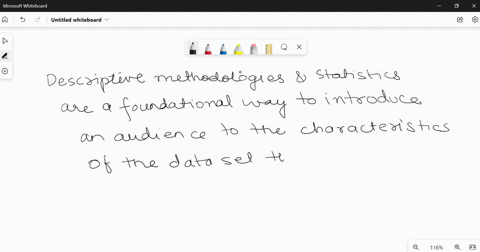 Microsoft Whiteboard
Untitled whiteboard
Descriptive methodologies & statistics
are a foundational way to introduce
an audience to the characteristics
of the data set t
116%